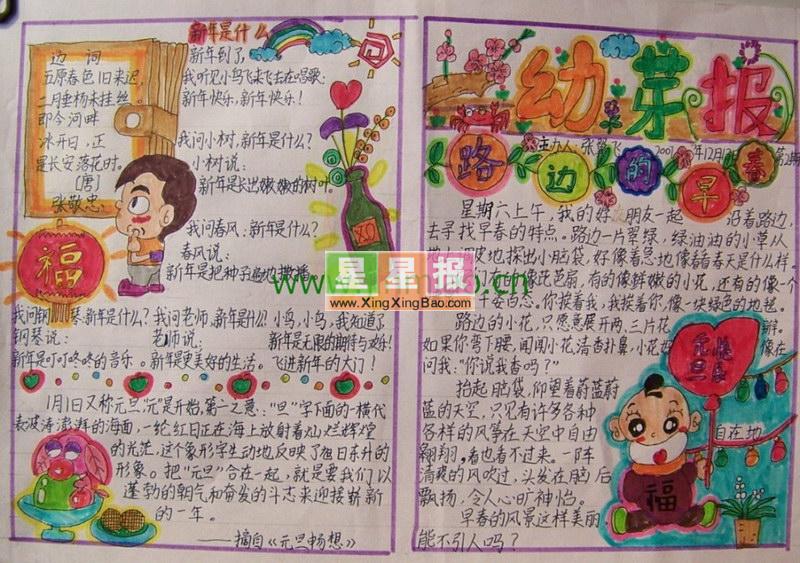 边词
五原春色旧来迟,
二月垂杨未挂丝。
即今河畔
冰开日,正
是长安落花时。
[唐]
张敬忠
福
新年是什么
新年到了,
我听见小鸟飞来飞去在唱歌:
新年快乐,新年快乐!
我问小树,新年是什么?
小树说:
新年是长出嫩嫩的树叶。
我问春风:新年是什么?
春风说:
新年是把种子遍地撒播
XO
我问钢琴:新年是什么?我问老师,新年是什么?小鸟,小鸟,我知道了
钢琴说: 老师说: 新年是无限的期待与欢乐!
新年是叮叮咚咚的音乐。新年是更美好的生活。飞进新年的大门!
1月1日又称元旦,"元"是开始,第一之意:"旦"字下面的一横代
表波涛澎湃的海面,一轮红日正在海上放射着灿烂辉煌
的光芒,这个象形字生动地反映了旭日东升的
形象。把"元旦"合在一起,就是要我们以
蓬勃的朝气和奋发的斗志来迎接崭新
的一年。
——摘自《元旦畅想》
幼芽报
主办人:张
2001年12月12日
路边的早春
星期六上午,我的好朋友一起 沿着路边,
去寻找早春的特点。路边一片翠绿,绿油油的小草从
地探出小脑袋,好像着急地像看看春天是什么样。
有的像鲜嫩的小花,还有的像一个
你挨着我,我挨着你,像一块绿色的地毯。
路边的小花,只愿意展开两、三片花 瓣。
如果你弯下腰,闻闻小花,清香扑鼻,小花好 像在
问我:"你说我香吗?"
抬起脑袋,仰望着蔚蓝蔚
蓝的天空,只见有许多各种
各样的风筝在天空中自由 自在地
翱翔。看也看不过来。一阵
清爽的风吹过,头发在脑后
飘扬,令人心旷神怡。
早春的风景这样美丽
能不引人吗?
福
星星报
www.XingXingBao.com
.cn